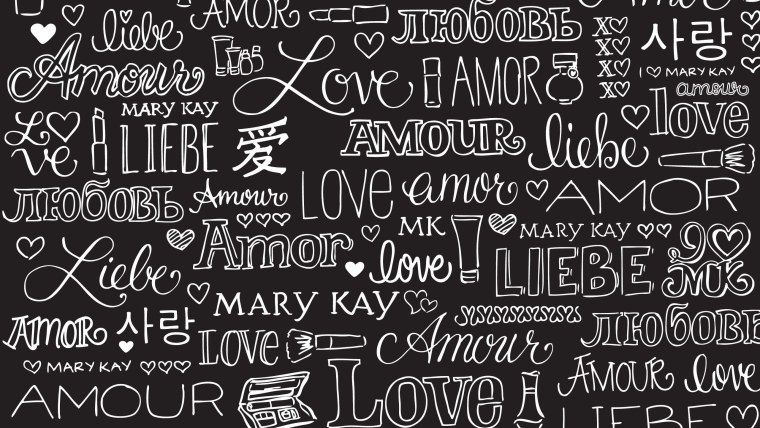 AMOR
ЛЮБОВЬ
liebe
XO
사랑
Amour
Love
AMOR
XO
XO
I ♡ MARY KAY
XO
amour
MARY KAY
love
LoVe
LIEBE
爱
AMOUR
liebe
ЛЮБОВЬ
Amour
LOVE
amor
AMOR
Amor
MK
MARY KAY
Liebe
love
LIEBE
I ♡ MK
MARY KAY
AMOR
사랑
LOVE
Amour
ЛЮБОВЬ
MARY KAY
AMOUR
love
AMOUR
Love
LIEBE